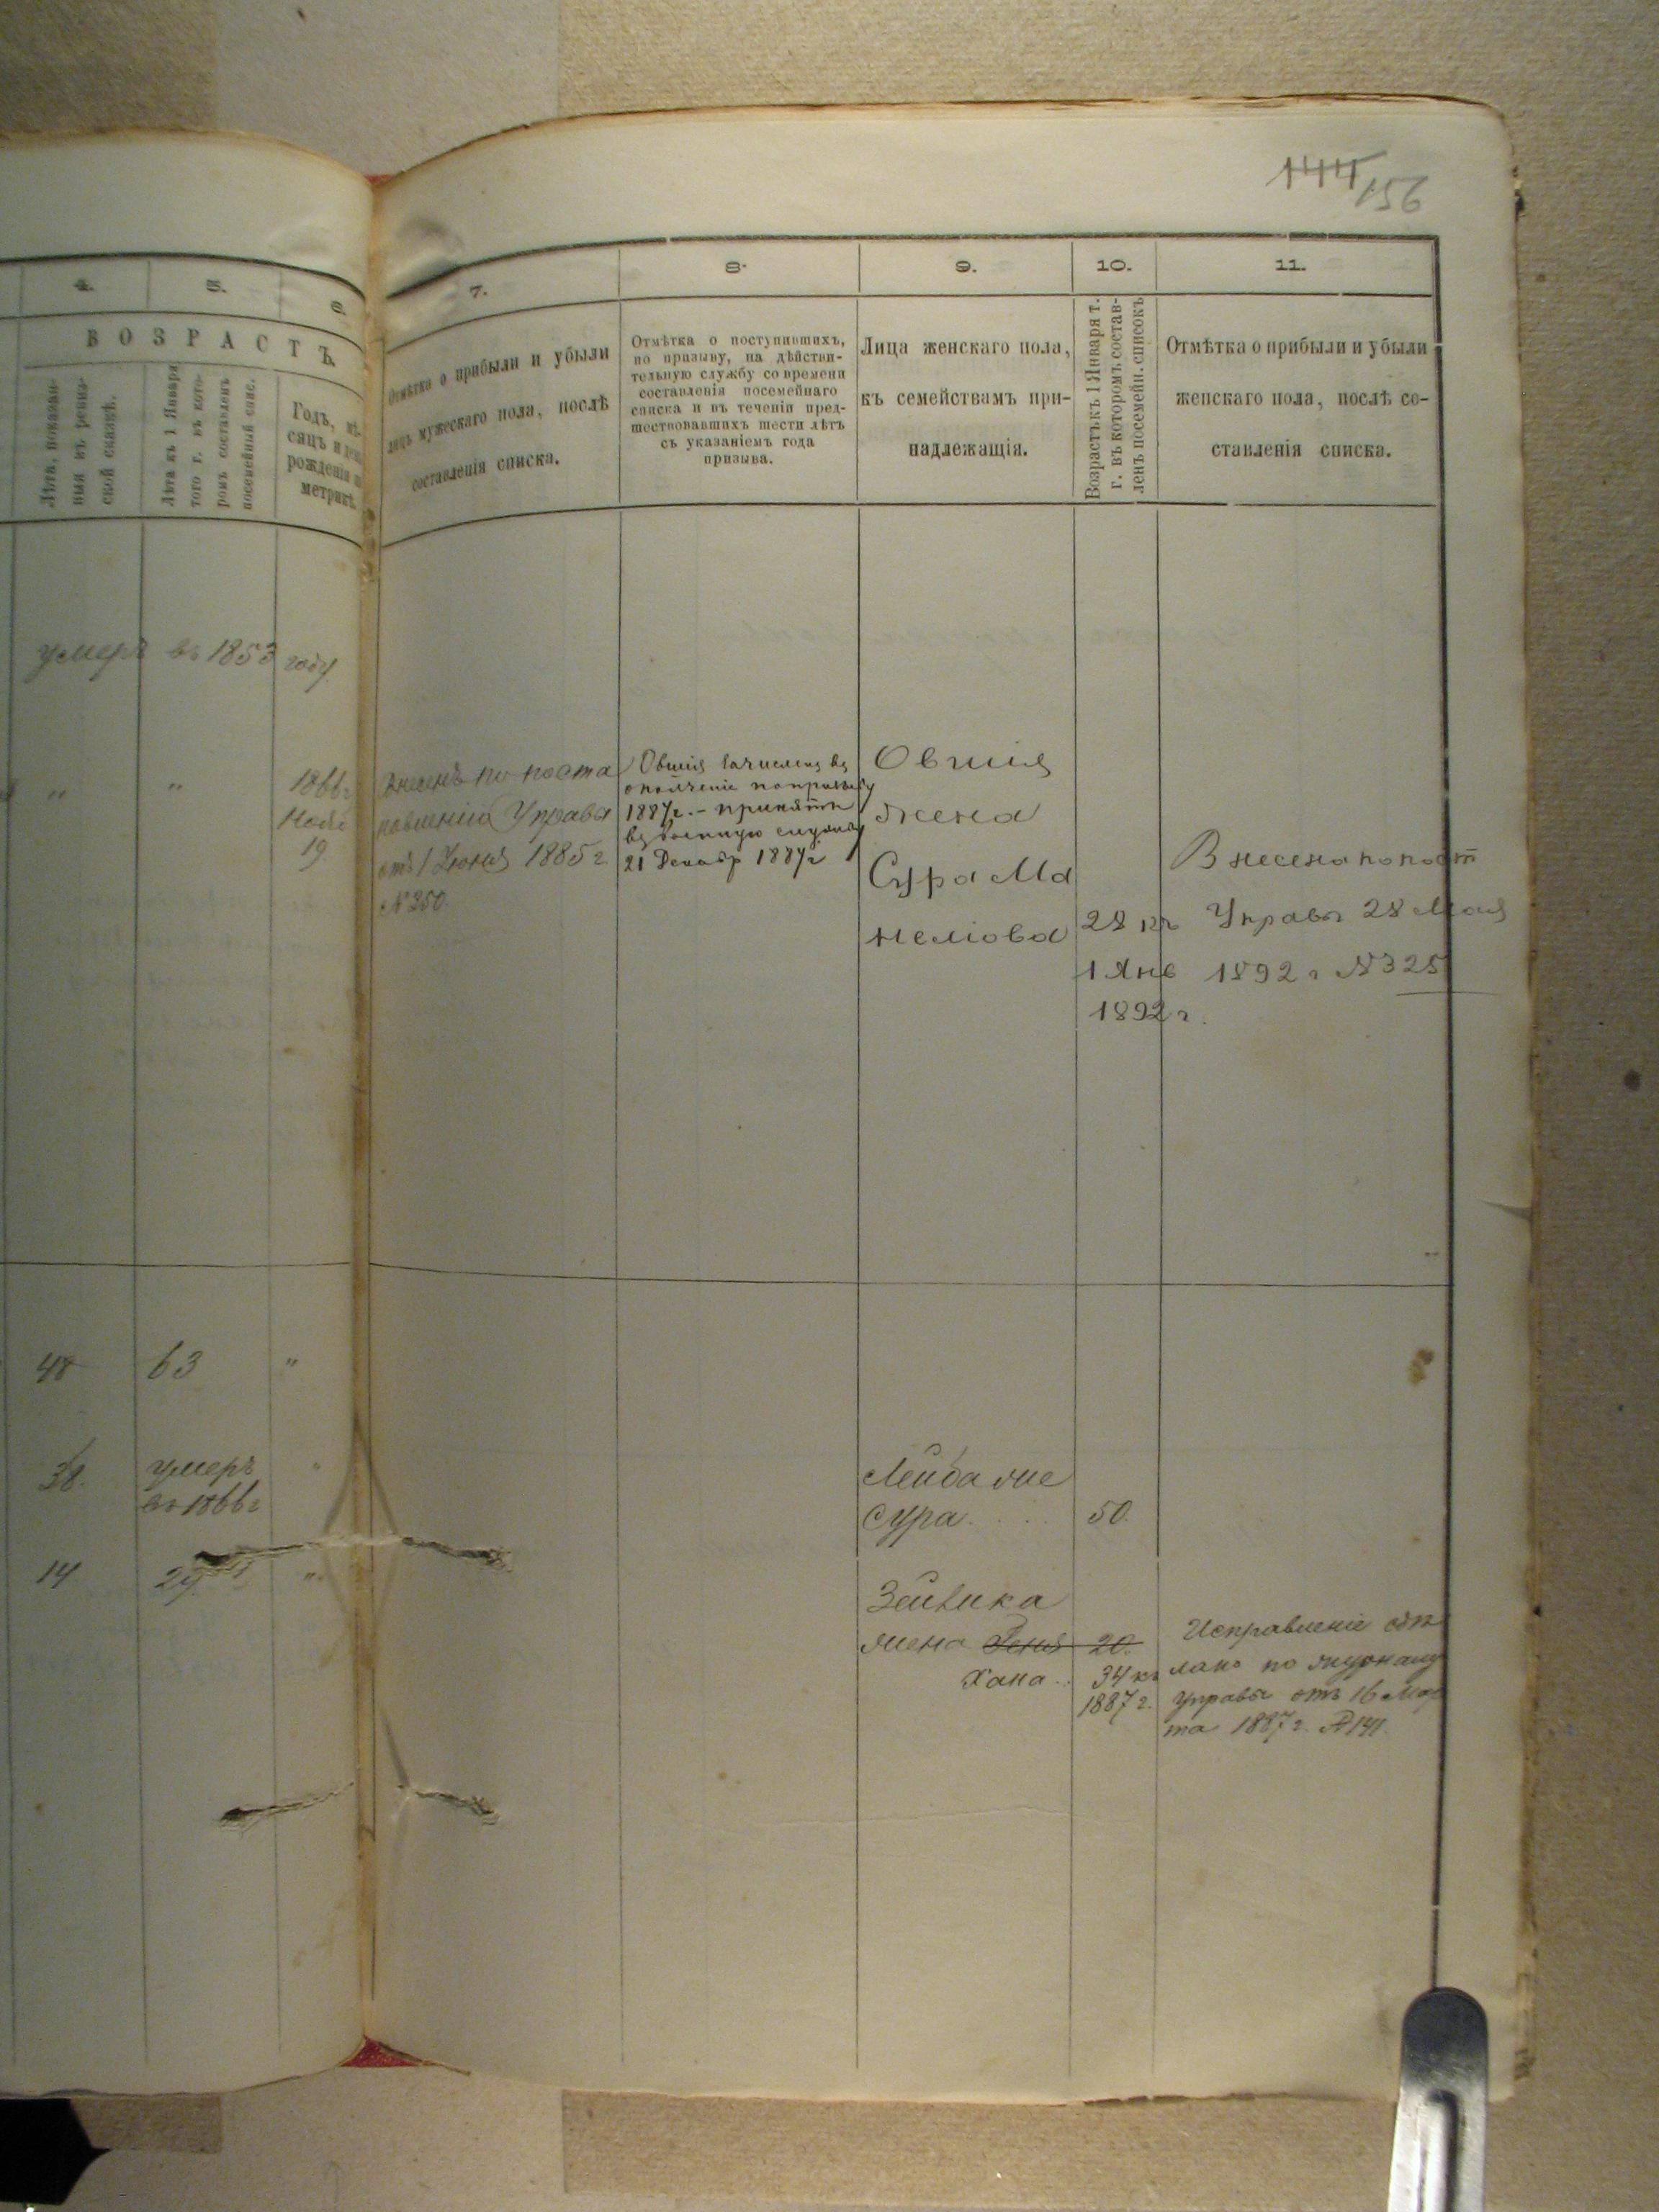 144/156
4.
5.
6.
ВОЗРАСТЪ
Лѣта, показан-
ныя въ ревиз-
ской сказкѣ.
Лѣта къ 1 Января
того г. въ кото-
ромъ составленъ
посемейный спис.
Годъ, мѣ-
сяцъ и день
рожденія по
метрикѣ.
умеръ въ 1853 году
" "
1866 г
Нояб
19
48 63 "
38. умеръ "
въ 1866 г
14 29. "
7.
8.
9.
10.
11.
Отмѣтка о прибыли и убыли
лицъ мужескаго пола, послѣ
составленія списка.
Отмѣтка о поступившихъ,
по призыву, на дѣйстви-
тельную службу со времени
составленія посемейнаго
списка и въ теченіи пред-
шествовавшихъ шести лѣтъ
съ указаніемъ года
призыва.
Лица женскаго пола,
къ семействамъ при-
надлежащія.
Возрастъ къ 1 Января т.
г. въ которомъ состав-
ленъ посемейн. списокъ
Отмѣтка о прибыли и убыли
женскаго пола, послѣ со-
ставленія списка.
Внесенъ по поста
новленію Управы
отъ 1 Іюня 1885 г
№ 250.
Овшія зачисленъ въ
ополченіе по призыву
1887 г. – принятъ
въ военную службу
21 Декабр 1887 г
Овшія
жена
Сура Ма
неліова
28 къ
1 Янв
1892 г.
Внесена по пост
Управы 28 Мая
1892 г № 325
Лейба же
Сура . . . . 50.
Зейлика
жена Геня 20.
Хана .. 34 къ
1887 г.
Исправленіе сдѣ
лано по журналу
Управы отъ 16 Мар
та 1887 г. № 141.